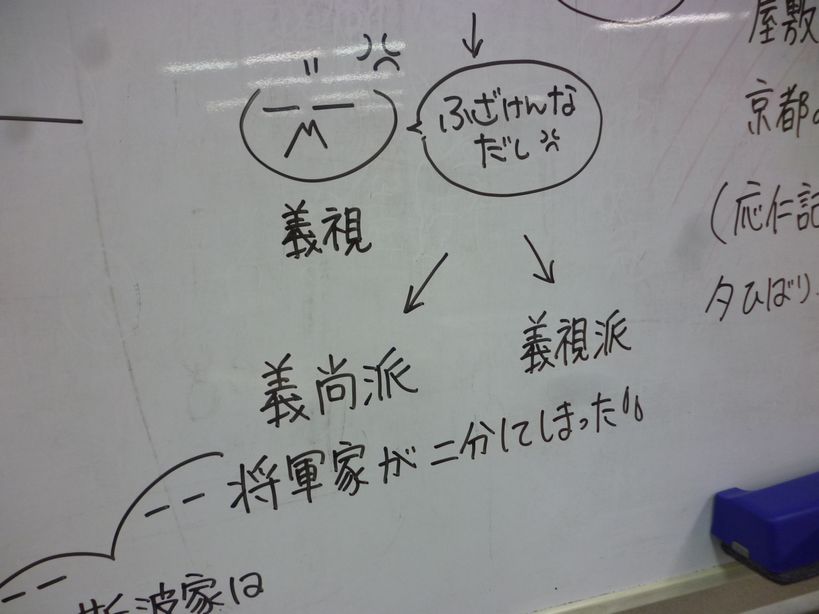 ふざけんな
だし
義視
義尚派
義視派
将軍家が二分してしまった
斯波家は
屋敷
京都
(応仁記
夕ひばり